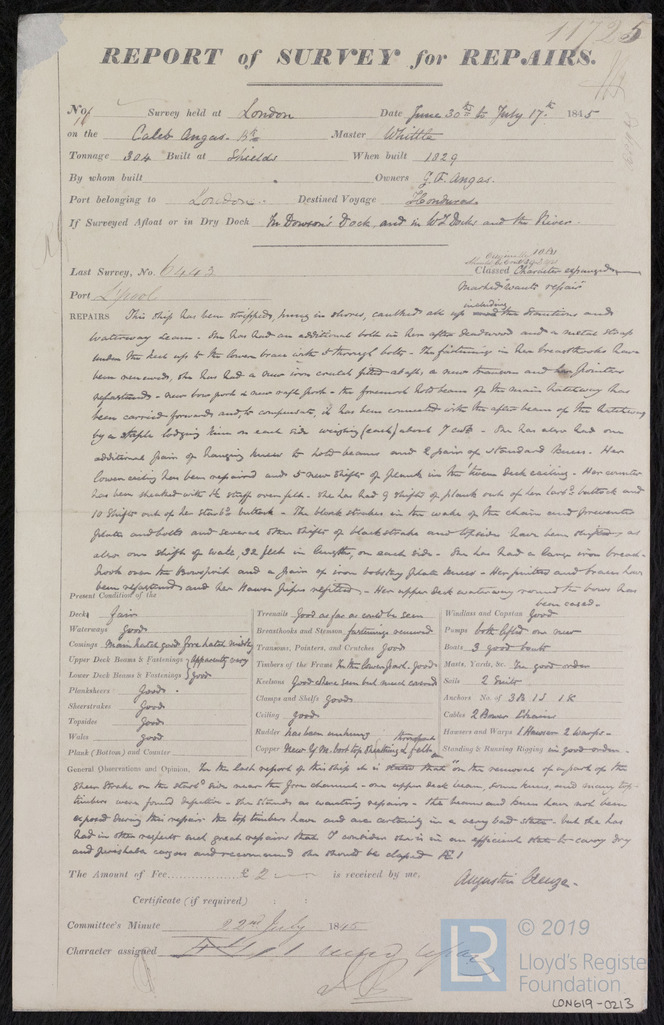 11725
REPORT of SURVEY for REPAIRS.
No. Survey held at London Date June 30th to July 17th 1845
on the Caleb Angas Master Whittle
Tonnage 304 Built at Shields When built 1829
By whom built Owners G. F. Angas.
Port belonging to London. Destined Voyage Honduras
If Surveyed Afloat or in Dry Dock In Dowson's Dock, and in W I Docks and the River.
Last Survey, No. 6443 Classed Character expunged
Port Lpool Marked "wants repair"
including
REPAIRS This ship has been stripped, hung in shores, caulked all up the and
waterway seam. She has had an additional bolt in her after deadwood and a metal strap
under the heel up to the lower brace with 5 through bolts. The fastenings in her breasthooks have
been renewed, she has had a new iron crutch fitted abaft, a new transom and her pointers
refastened. new bow port & new raft port. the foremost hold beam of the main hatchway has
been carried forward and, to compensate, it has been connected with the after beam of the hatchway
by a staple lodging knee on each side weighing (each) about 7 cwt. She has also had one
additional pair of hanging knees to hold beams and 2 pair of standard knees. Her
lower ceiling has been repaired and 5 new shifts of plank in the 'tween deck ceiling. Her counter
has been sheathed with 1¼ stuff over felt. She has had 9 shifts of plank out of her larbd buttock and
10 shifts out of her starbd buttock. The black strakes in the wake of the chain and preventer
plates and bolts and several other shifts of blackstrake and topsides have been shifted as
also one shift of wale, 32 feet in length, on each side. She has had a large iron breast-
hook over the Bowsprit and a pair of iron bobstay plate knees. Her pintles and braces have
been refastened and her Hawse pipes refitted. Her upper deck waterway round the bows has
been cased.
Present Condition of the
Decks fair
Waterways good
Comings Main hatch good fore hatch middling
Upper Deck Beams & Fastenings Apparently very
Lower Deck Beams & Fastenings good
Planksheers Good.
Sheerstrakes Good
Topsides Good
Wales good
Plank (Bottom) and Counter
Treenails Good as far as could be seen
Breasthooks and Stemson fastenings renewed
Transoms, Pointers, and Crutches Good
Timbers of the Frame In the lower part. Good
Keelsons Good where seen but much covered
Clamps and Shelfs Good
Ceiling good
Rudder has been unhung
Copper New Y.M. boot top sheathing & felt throughout
Windlass and Capstan Good
Pumps both lifted one new
Boats 3 good boats
Masts, Yards, &c. In good order
Sails 2 Suits
Anchors No. of 3 B 1 S 1 K
Cables 2 Bower Chains
Hawsers and Warps 1 Hawser 2 Warps.
Standing & Running Rigging in good order.
General Observations and Opinion. In the last report of this ship it is stated that "on the removal of a part of the
Sheer Strake on the starbd side near the fore channel - one upper deck beam, some knees and many top-
timbers were found defective. She stands as wanting repairs. The beams and knees have not been
exposed during this repair the top timbers have and are certainly in a very bad state. but she has
had in other respects such great repairs that I consider she is in an efficient state to carry dry
and perishable cargoes and recommend she should be classed Æ 1
The Amount of Fee £ 2 is received by me, Augustin Creuze.
Certificate (if required) : :
Committee's Minute 22nd July 1845
Character assigned
LR
© 2019
Lloyd's Registe
Foundation
LON619-0213